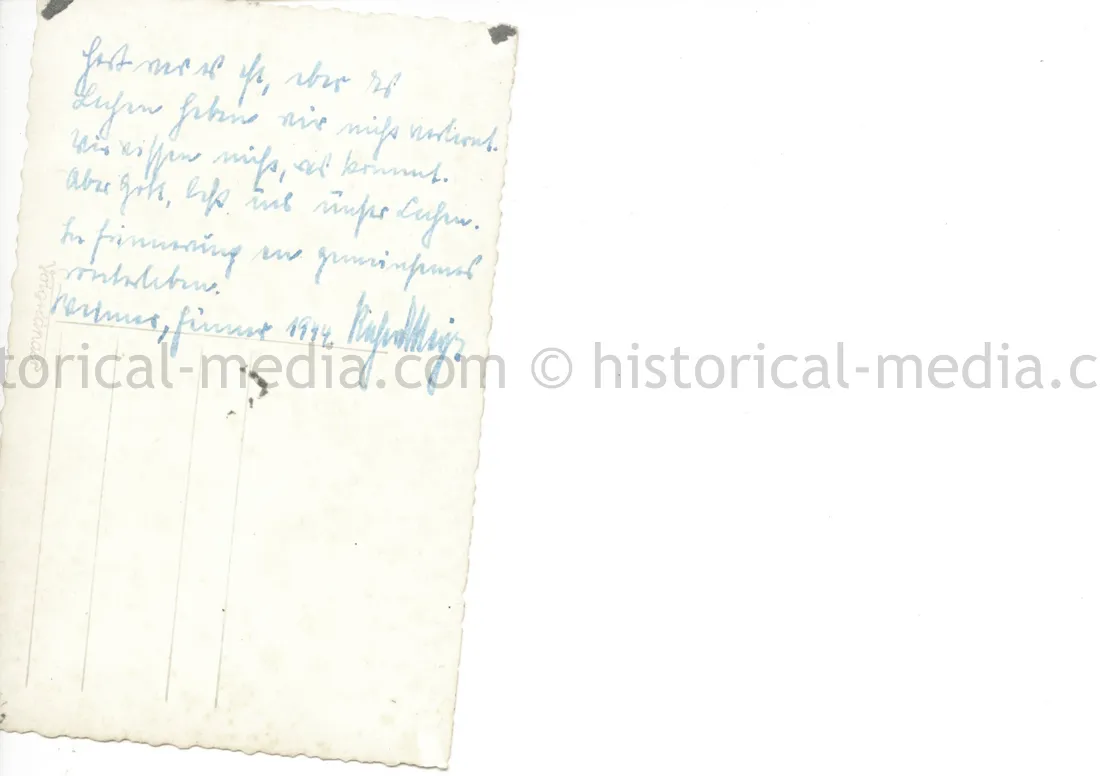 Hart war es oft, aber das
Lachen haben wir nicht verlernt.
Wir wissen nicht, was kommt.
Aber Gott, laß uns unser Lachen.
In Erinnerung an gemeinsames
Fronterleben.
Weimar, Jänner 1944. Richard
torical-media.com © historical-media.c